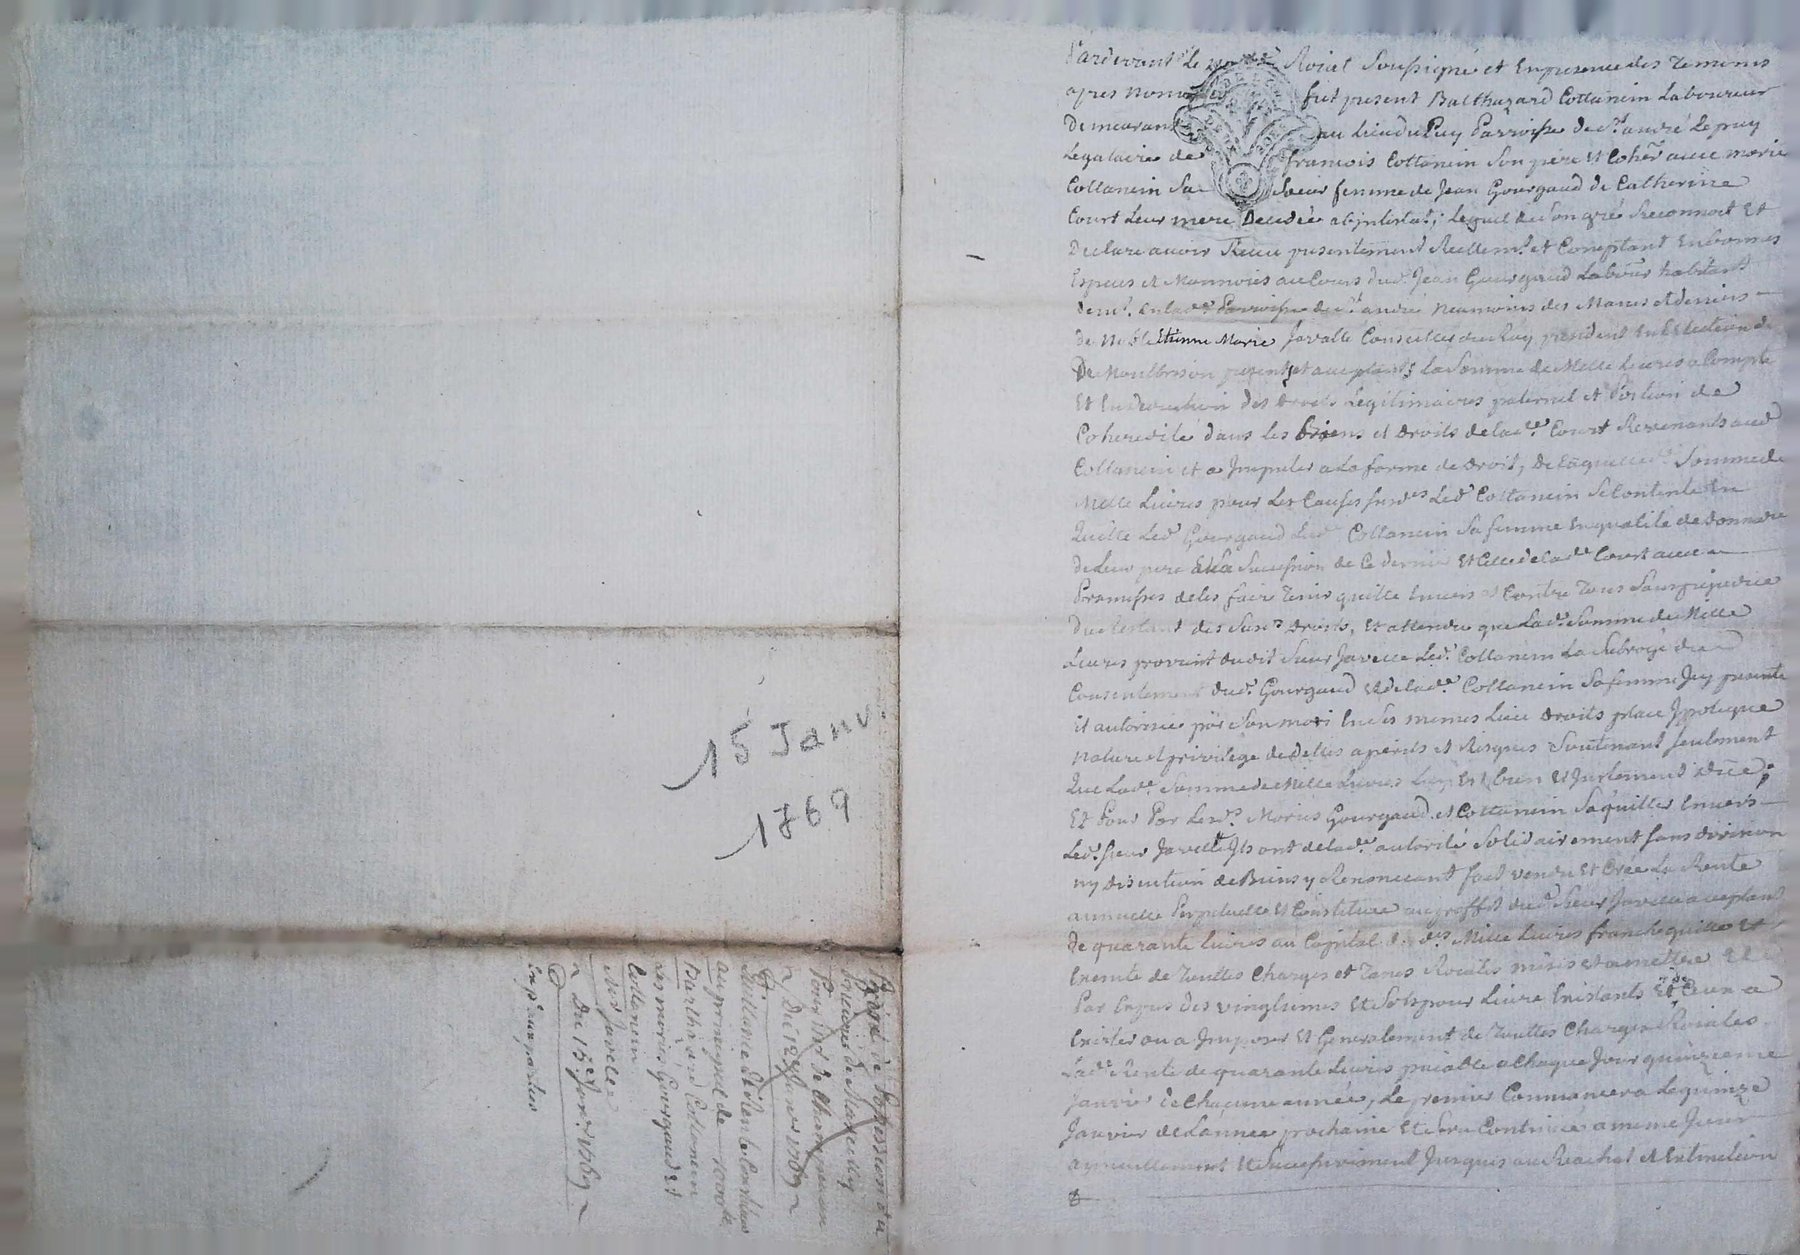 15 Janv
1769
Quittance Et Rente Constituée
au principal de 1000 l.
Barthazard Cottancin
Les mariés Gourgaud Et
Cottancin
Mr Javelle
Du 15e Janr. 1769
Pardevant Le Roial Soussigné et En presence des Temoins
apres nommés fut present Balthazard Cottancin Laboureur
Demeurant au Lieu du Puy Parroisse de st. andré Le puy
Legataire de francois Cottancin Son pere et Coher. avec marie
Cottancin Sa Soeur femme de Jean Gourgaud de Catherine
Court Leur mere Decedée abintestat; Lequel de Son gré Reconnoit Et
Declare avoir Receu presentement Reellemt. et Comptant En bonnes
Especes et Monnoies au Cours dud. Jean Gourgaud Labour habitant
demt. en lade. Parroisse de st. andré neamoins des Mains et deniers
de Noble Etienne Marie Javelle Conseiller du Roy president en L'Election de
De Montbrison present et acceptant; La Somme de Mille Livres a Compte
Et En deduction des droits Legitimaires paternel et Portion de
Coheredité dans les biens et droits de lade. Court Revenants aud.
Cottancin et a Imputer a La forme de droit, De laquelle Somme de
Mille Livres pour Les Causes susdes Led. Cottancin Se Contente En
Quitte Led. Gourgaud Cottancin Sa femme En qualité de
de Leur pere Et la Succession de Ce dernier Et Celle de lade. Court avec
Promesses de les faire Tenir quitte Envers Et Contre Tous Sans prejudice
du Restant des Susds Droits, Et attendu que Lade. Somme de Mille
Livres provient dudit Sieur Javelle Led. Cottancin La Subrogé du
Consentement dud. Gourgaud Et de lade. Cottancin Sa femme Icy presente
Et autorisée par Son mari En Ses memes Lieu Droits place Ipoteque
Nature et privilege de Dettes a perils et Risques Soutenant Seulement
Que Lade. Somme de Mille Livres Luy Est bien Et Justement Düe;
Et Pour Par Lesd. Mariés Gourgaud et Cottancin S'aquitter Envers
Led. Sieur Javelle Ils ont de lade. autorité Solidairement Sans division
ny Discution de Biens y Renoncant fait vendu Et Créé La Rente
annuelle Perpetuelle Et Constituée au proffit dud. Sieur Javelle acceptant
de quarante Livres au Capital Mille Livres franche quitte et
Exemte de Touttes Charges et Taxes Roiales mises et a mettre
Par Expres des vingtiemes Et Sols pour Livre Existants Et Ceux a
Exister ou a Imposer Et Generalement de Touttes Charges Roiales
Lade. Rente de quarante Livres paiable a Chaque Jour quinzieme
Janvier de Chacune année, Le premier Commancera Le quinze
Janvier de L'annee prochaine Et Sera Continué a meme Jour
annuellement Et Successivement Jusques au Rachat et Extinction